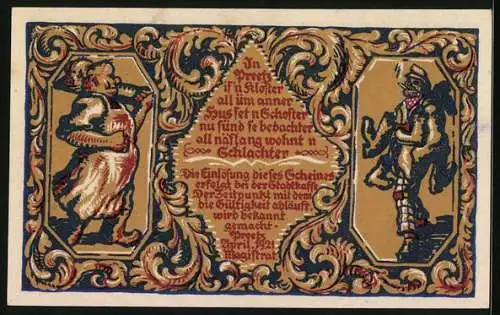 In
Preetz
is'n Kloster
all üm anner
Hus set n Schoster
nu sünd se bedachter
all näslang wohnt n
Schlachter
Die Einlösung dieses Scheines
erfolgt bei der Stadtkasse
Der Zeitpunkt mit dem
die Gültigkeit abläuft
wird bekannt
gemacht ·
Preetz
April 1921
Magistrat